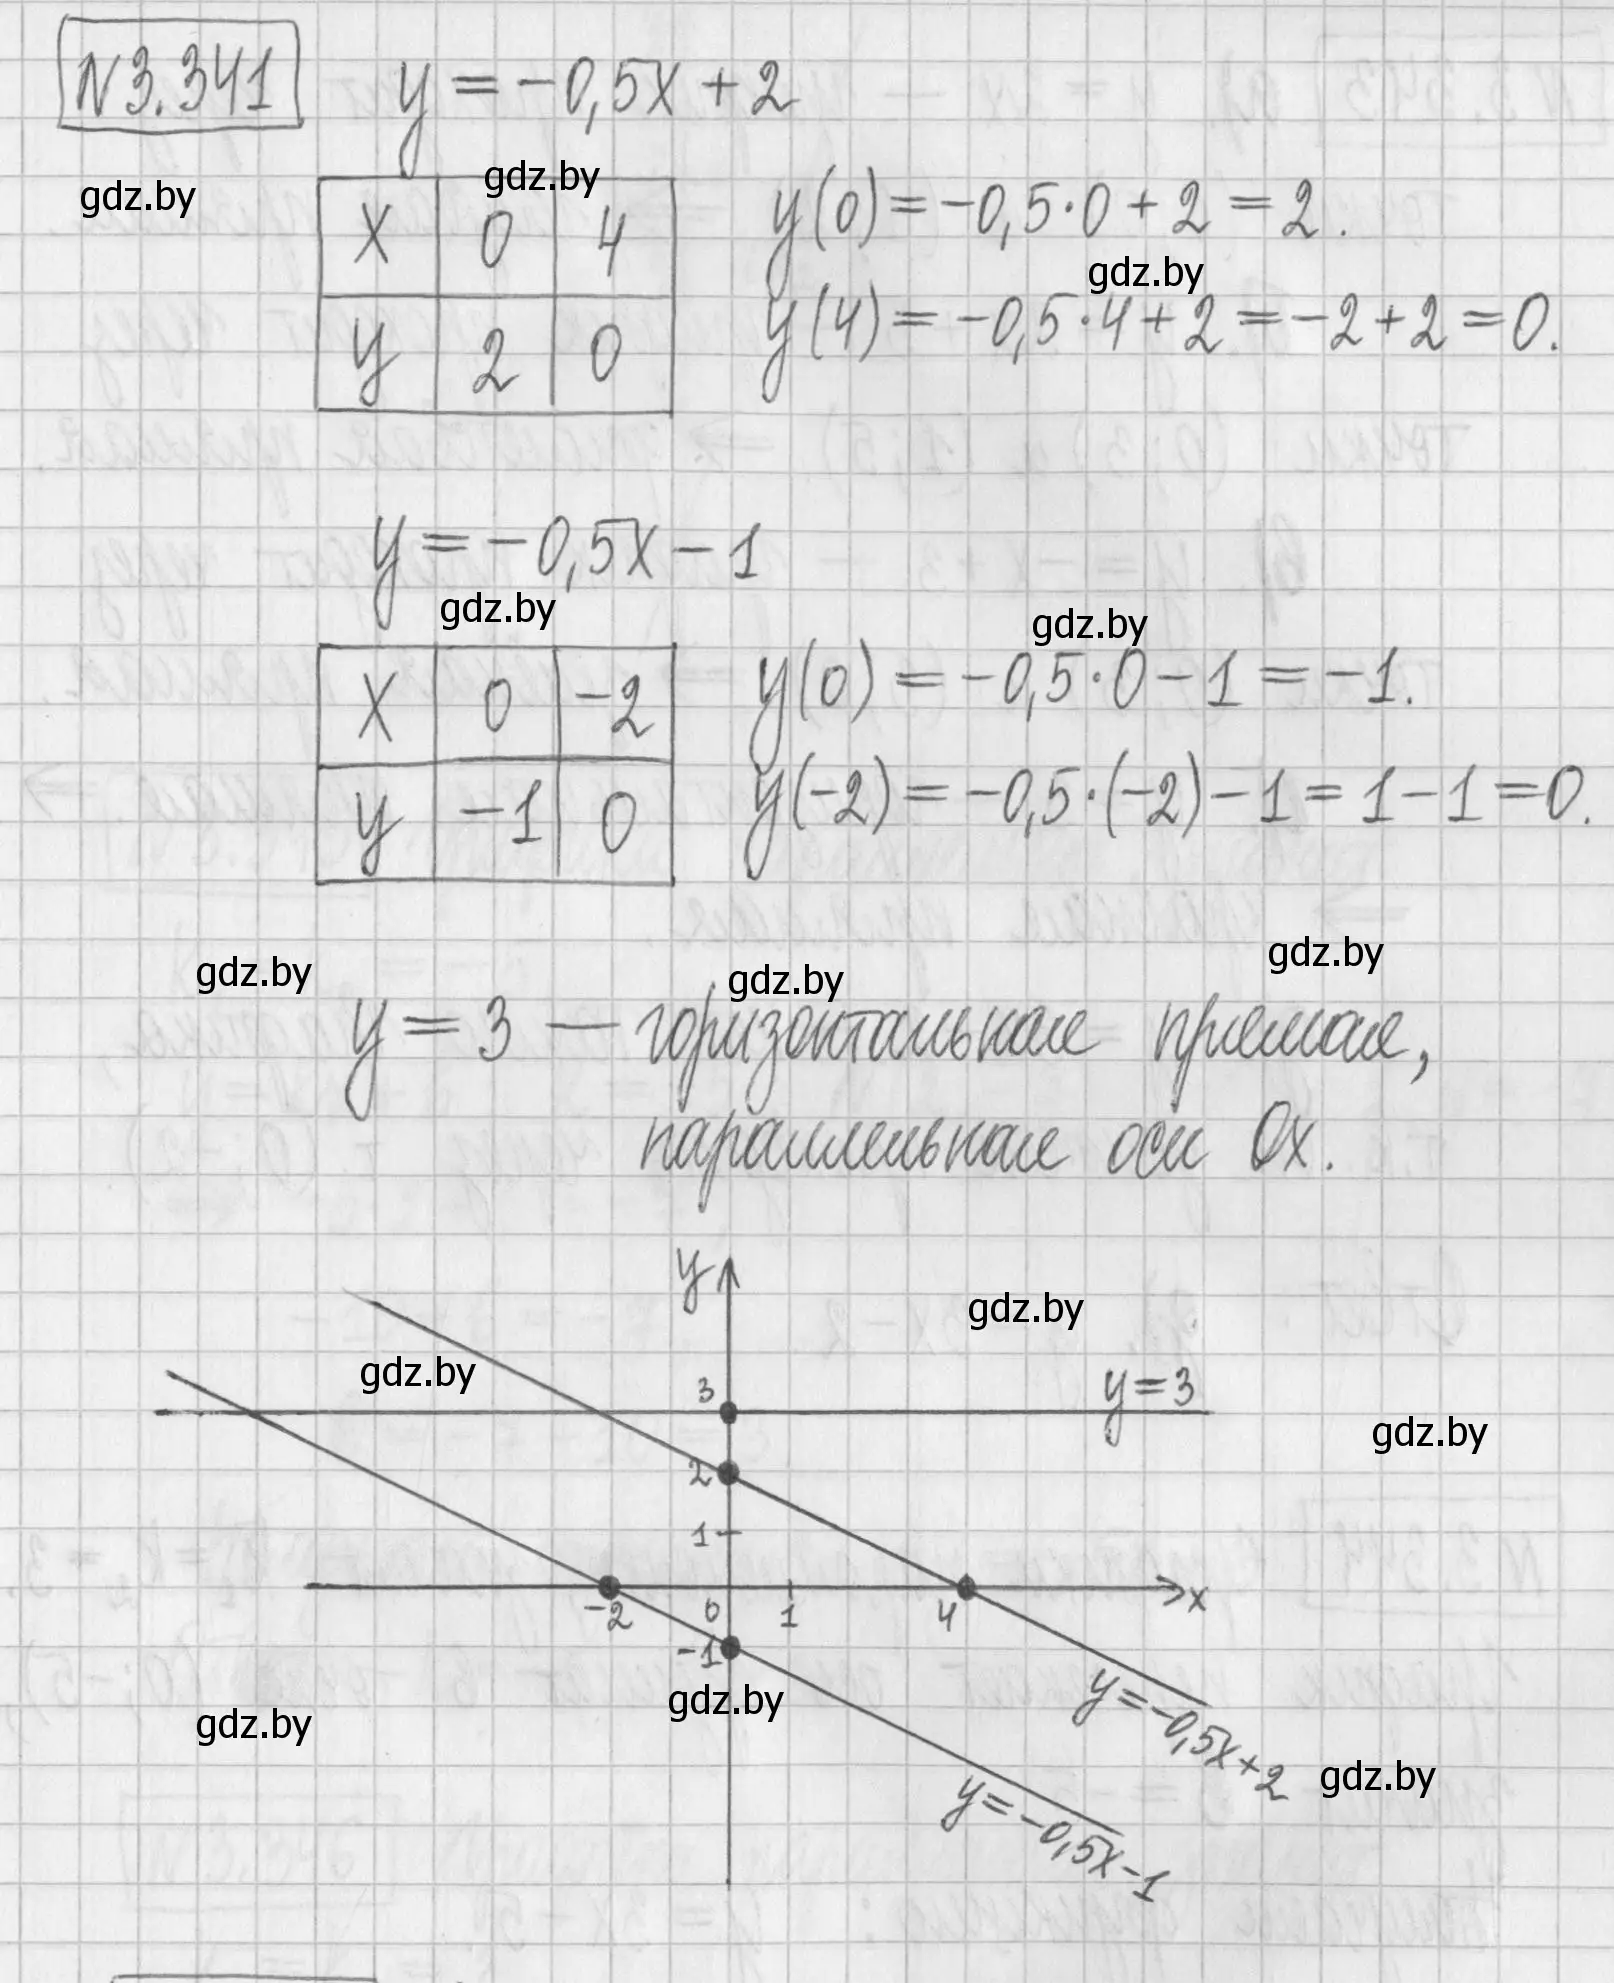 N3.341 y = -0,5x + 2
gdz.by gdz.by
x 0 4 y(0) = -0,5·0 + 2 = 2.
gdz.by
y 2 0 y(4) = -0,5·4 + 2 = -2 + 2 = 0.
y = -0,5x - 1
gdz.by gdz.by
x 0 -2 y(0) = -0,5·0 - 1 = -1.
y -1 0 y(-2) = -0,5·(-2) - 1 = 1 - 1 = 0.
gdz.by gdz.by gdz.by
y = 3 — горизонтальная прямая,
параллельная оси Ox.
y
gdz.by
gdz.by
3 y=3
gdz.by
2
1
-2 0 1 4 x
-1
gdz.by gdz.by
y=-0,5x+2
gdz.by
y=-0,5x-1